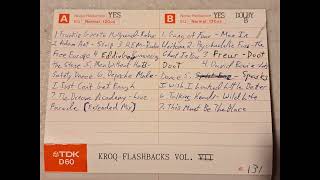 A Noise Reduction YES
Normal, 120µs
1 Frankie Goes to Hollywood-Relax
2 Adam Ant - Strip 3 REM- Radio
Free Europe 4
the Stage 5 Men Without Hats-
Safety Dance 6 Depeche Mode-
I Just Can't Get Enough
7 The Dream Academy - Love
Parade [Extended Mix]
B Noise Reduction YES DOLBY
Normal, 120µs
1 Gang of Four - Man In
Uniform 2 Psychedelic Furs-The
Ghost In You 3 Freur - Doot
Doot 4 David Bowie-
Dance 5 Sparks
I Wish I Looked A Little Better
6 Talking Heads - Wild Life
7 This Must Be The Place
TDK
D60
KROQ FLASHBACKS VOL. VII
131